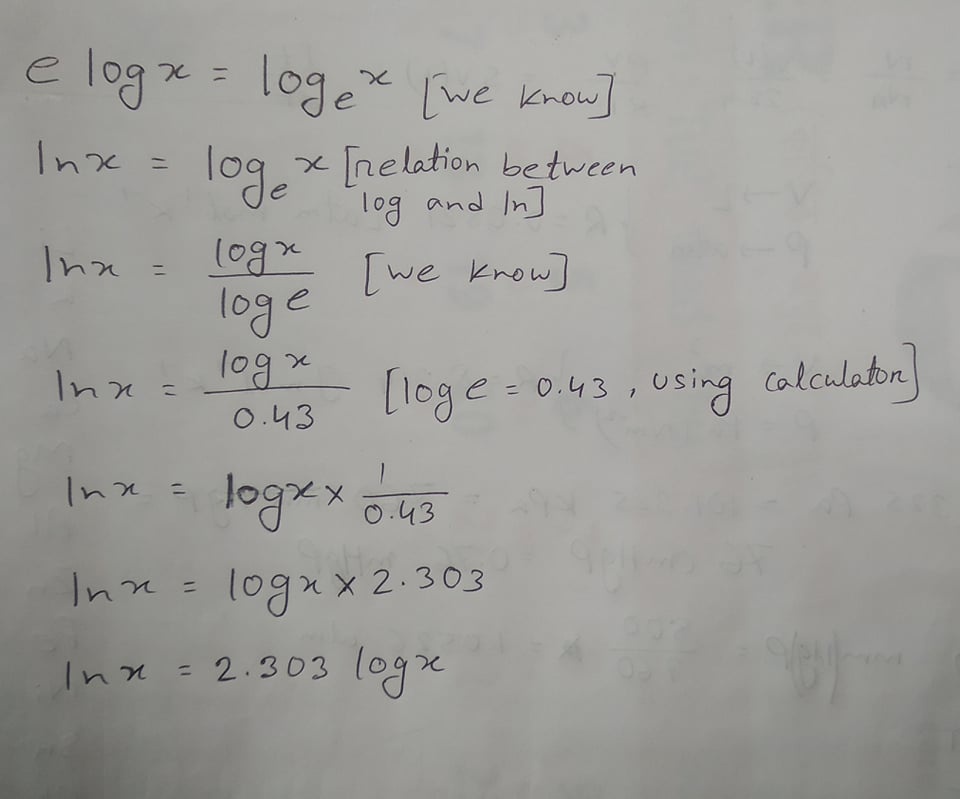 e log x = logₑ x [we know]
ln x = logₑ x [relation between
log and ln]
ln x = log x / log e [we know]
ln x = log x / 0.43 [log e = 0.43, using calculator]
ln x = log x × 1 / 0.43
ln x = log x × 2.303
ln x = 2.303 log x